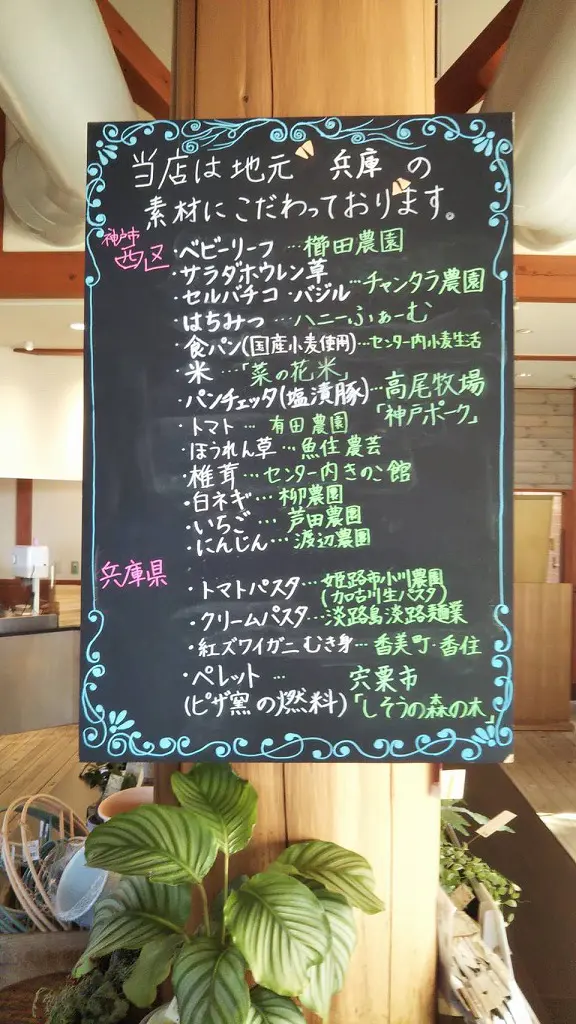 当店は地元 兵庫 の
素材にこだわっております。
神戸市
西区
・ベビーリーフ…櫛田農園
・サラダホウレン草
・セルバチコ・バジル…チャンタラ農園
・はちみつ…ハニーふぁーむ
・食パン(国産小麦使用)…センター内小麦生活
・米…「菜の花米」
・パンチェッタ(塩漬豚)…高尾牧場
「神戸ポーク」
・トマト…有田農園
・ほうれん草…魚住農芸
・椎茸…センター内きのこ館
・白ネギ…柳農園
・いちご…芦田農園
・にんじん…渡辺農園
兵庫県
・トマトパスタ…姫路市小川農園
(加古川生パスタ)
・クリームパスタ…淡路島淡路麺業
・紅ズワイガニむき身…香美町・香住
・ペレット… 宍粟市
(ピザ窯の燃料)「しそうの森の木」